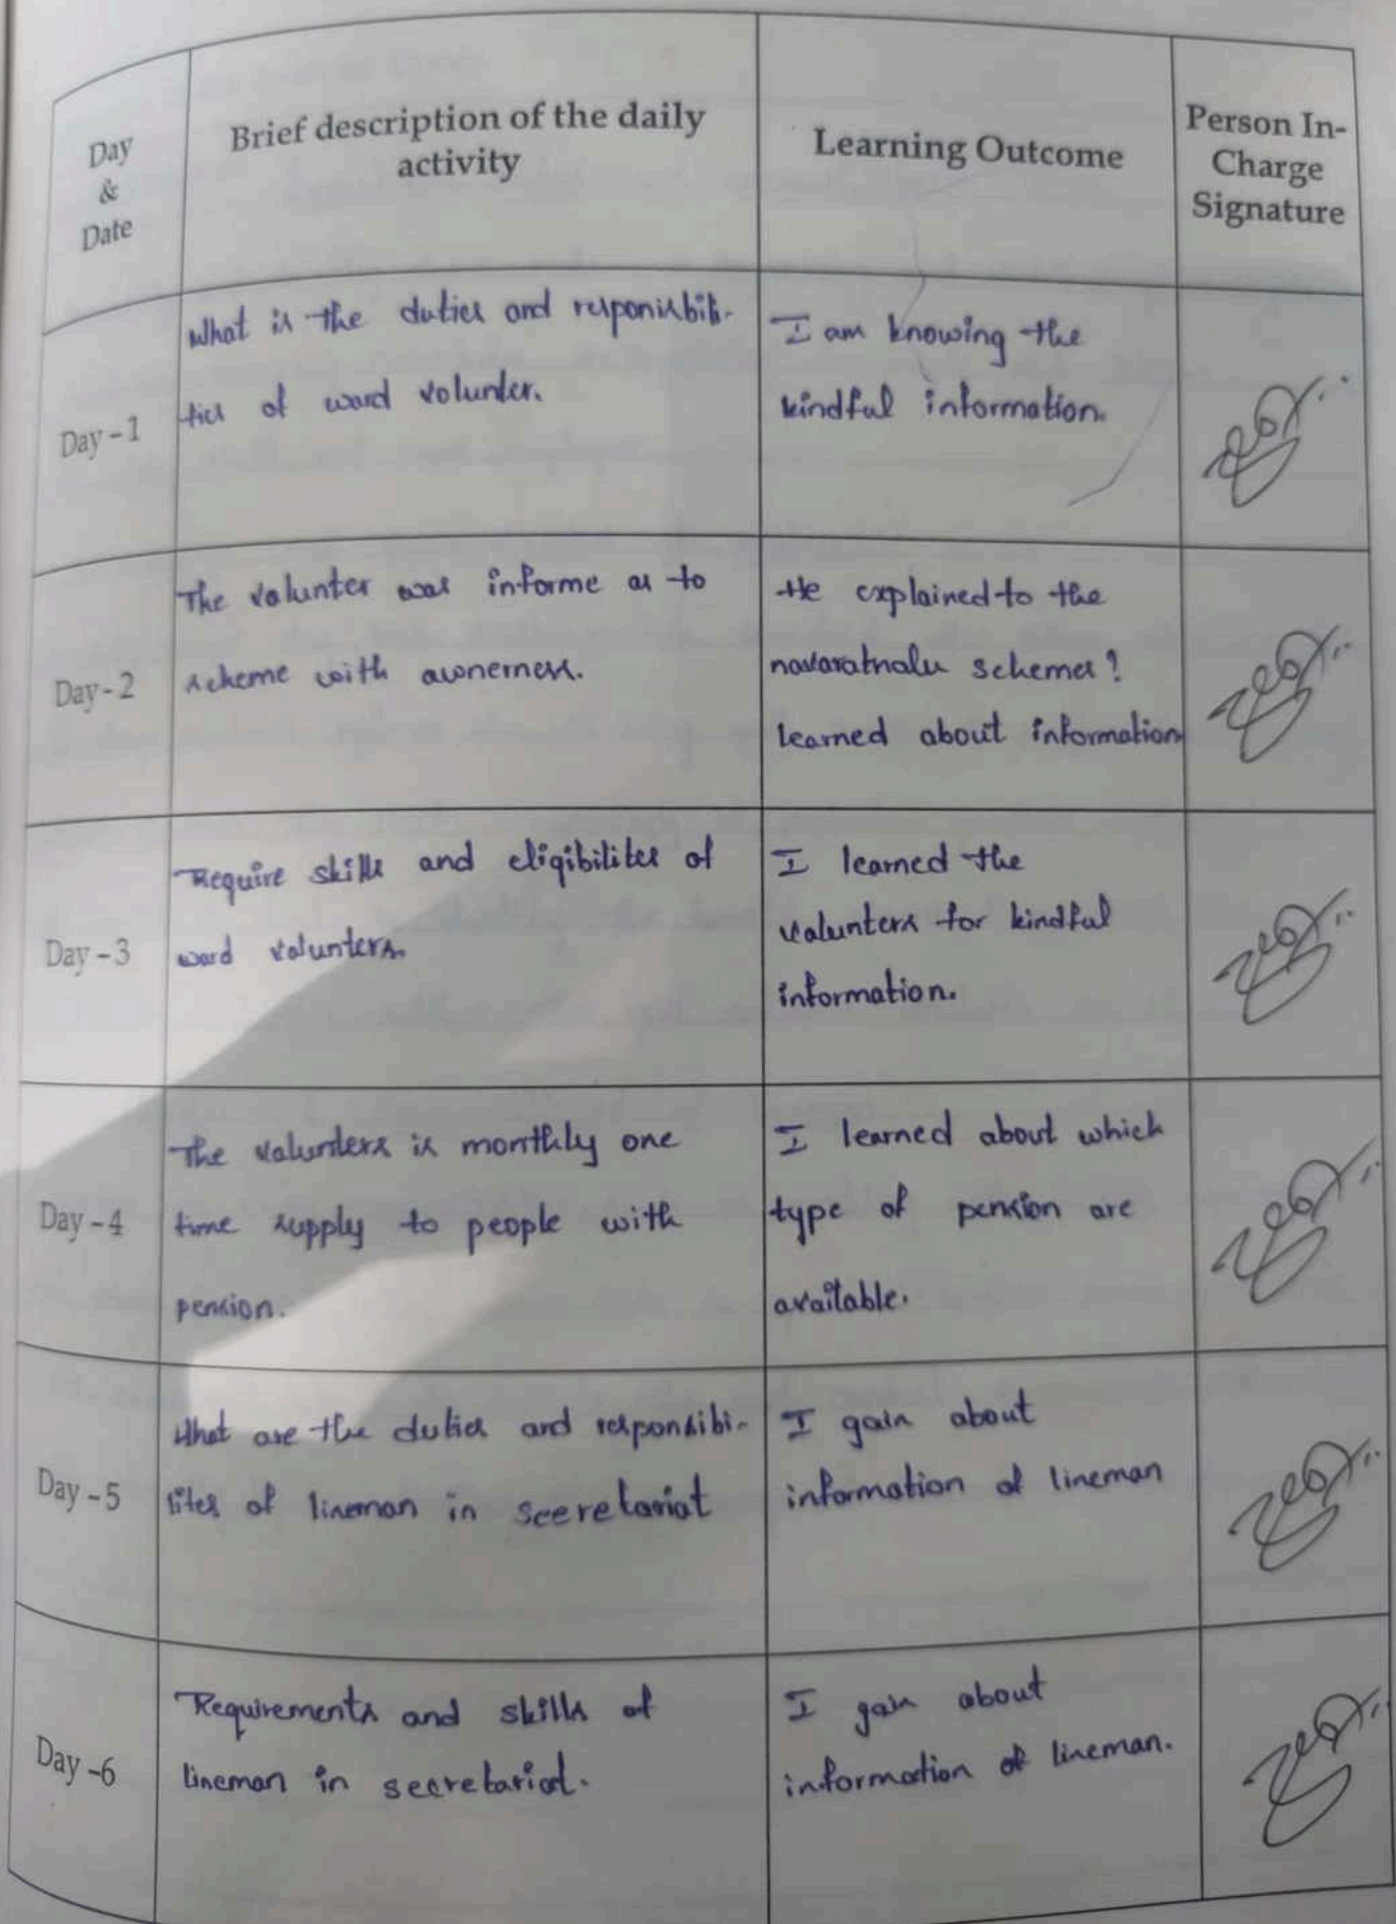 Day
&
Date
Brief description of the daily
activity
Learning Outcome
Person In-
Charge
Signature
Day - 1
What is the duties and responisbili-
ties of ward volunter.
I am knowing the
kindful information.
Day - 2
The volunter was informe as to
scheme with awnerness.
He explained to the
navaratnalu schemes?
learned about information
Day - 3
Require skills and eligibilites of
ward volunters.
I learned the
volunters for kindful
information.
Day - 4
The volunters is monthly one
time supply to people with
pension.
I learned about which
type of pension are
available.
Day - 5
What are the duties and responsibi-
lites of lineman in seeretariat
I gain about
information of lineman
Day -6
Requirements and skills of
lineman in secretariat.
I gain about
information of lineman.